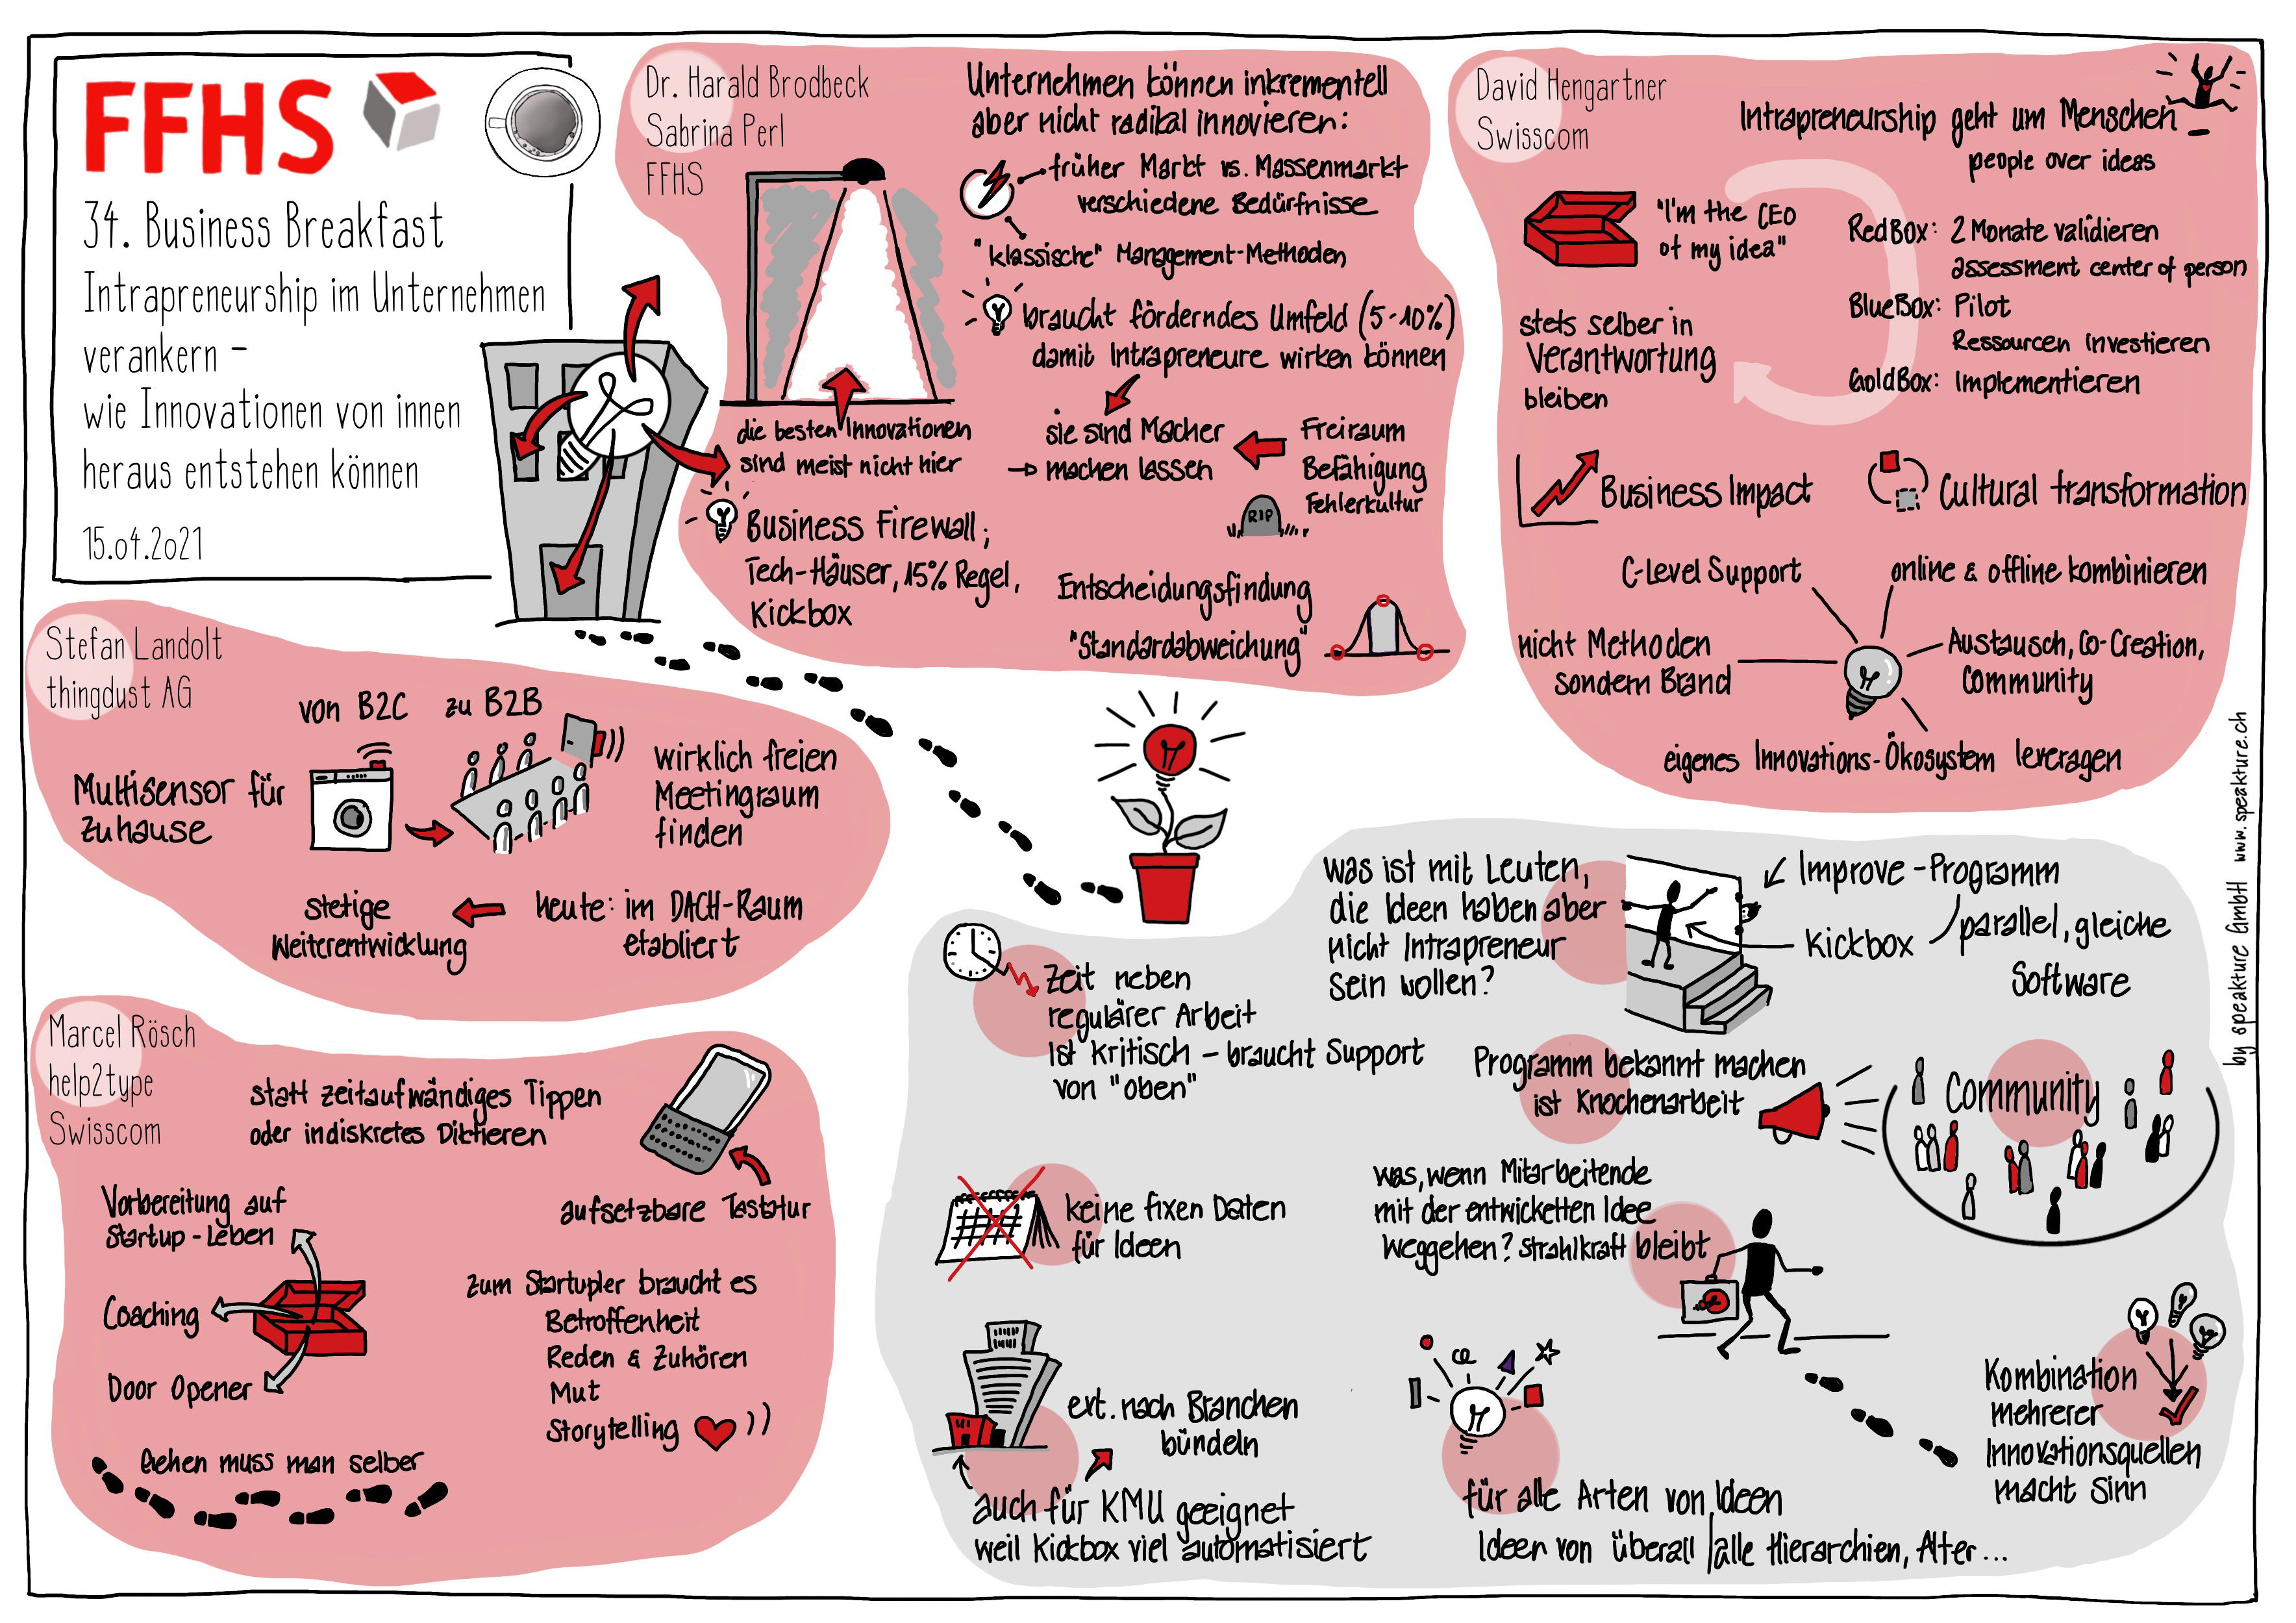 FFHS
34. Business Breakfast
Intrapreneurship im Unternehmen
verankern –
wie Innovationen von innen
heraus entstehen können
15.04.2021
Dr. Harald Brodbeck
Sabrina Perl
FFHS
Unternehmen können inkrementell
aber nicht radikal innovieren:
früher Markt vs. Massenmarkt
verschiedene Bedürfnisse
"klassische" Management-Methoden
braucht förderndes Umfeld (5-10%)
damit Intrapreneure wirken können
die besten Innovationen
sind meist nicht hier
sie sind Macher
→ machen lassen
Freiraum
Befähigung
Fehlerkultur
RIP
Business Firewall;
Tech-Häuser, 15% Regel,
Kickbox
Entscheidungsfindung
"Standardabweichung"
David Hengartner
Swisscom
Intrapreneurship geht um Menschen
people over ideas
"I'm the CEO
of my idea"
RedBox: 2 Monate validieren
assessment center of person
BlueBox: Pilot
Ressourcen investieren
GoldBox: Implementieren
stets selber in
Verantwortung
bleiben
Business Impact
Cultural transformation
C-Level Support
online & offline kombinieren
nicht Methoden
sondern Brand
Austausch, Co-Creation,
Community
eigenes Innovations-Ökosystem leveragen
Stefan Landolt
thingdust AG
von B2C zu B2B
Multisensor für
Zuhause
wirklich freien
Meetingraum
finden
heute: im DACH-Raum
etabliert
stetige
Weiterentwicklung
Marcel Rösch
help2type
Swisscom
statt zeitaufwändiges Tippen
oder indiskretes Diktieren
aufsetzbare Tastatur
Vorbereitung auf
Startup-Leben
Coaching
Door Opener
Gehen muss man selber
zum Startupler braucht es
Betroffenheit
Reden & Zuhören
Mut
Storytelling
Zeit neben
regulärer Arbeit
ist kritisch – braucht Support
von "oben"
was ist mit Leuten,
die Ideen haben aber
nicht Intrapreneur
sein wollen?
Improve-Programm
Kickbox
parallel, gleiche
Software
Programm bekannt machen
ist Knochenarbeit
Community
keine fixen Daten
für Ideen
was, wenn Mitarbeitende
mit der entwickelten Idee
weggehen? Strahlkraft bleibt
ext. nach Branchen
bündeln
auch für KMU geeignet
weil Kickbox viel automatisiert
für alle Arten von Ideen
Ideen von überall / alle Hierarchien, Alter...
Kombination
mehrerer
Innovationsquellen
macht Sinn
by speakture GmbH www.speakture.ch